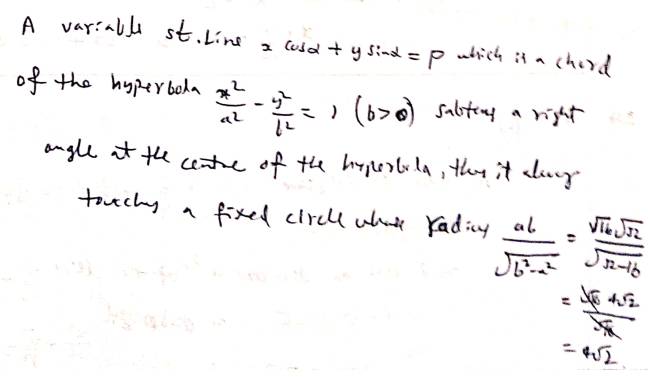 A variable st. Line x cosα + y sinα = p which is a chord
of the hyperbola x²/a² - y²/b² = 1 (b>0) subtens a right
angle at the centre of the hyperbola, then it always
touches a fixed circle whose radius ab/√(b²-a²) = √16√32/√(32-16)
= √16 4√2/√16
= 4√2